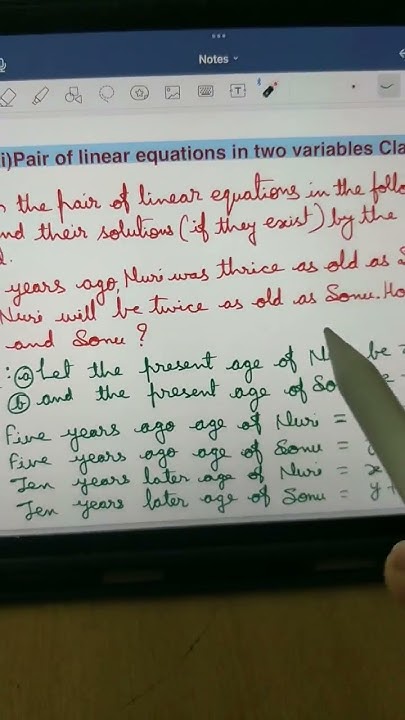 Notes
i)Pair of linear equations in two variables Cla
the pair of linear equations in the follo
nd their solutions (if they exist) by the
years ago, Nuri was thrice as old as S
Nuri will be twice as old as Sonu. Ho
and Sonu ?
: (a) Let the present age of N be =
(b) and the present age of So
Five years ago age of Nuri =
Five years ago age of Sonu =
Ten years later age of Nuri = x
Ten years later age of Sonu = y+